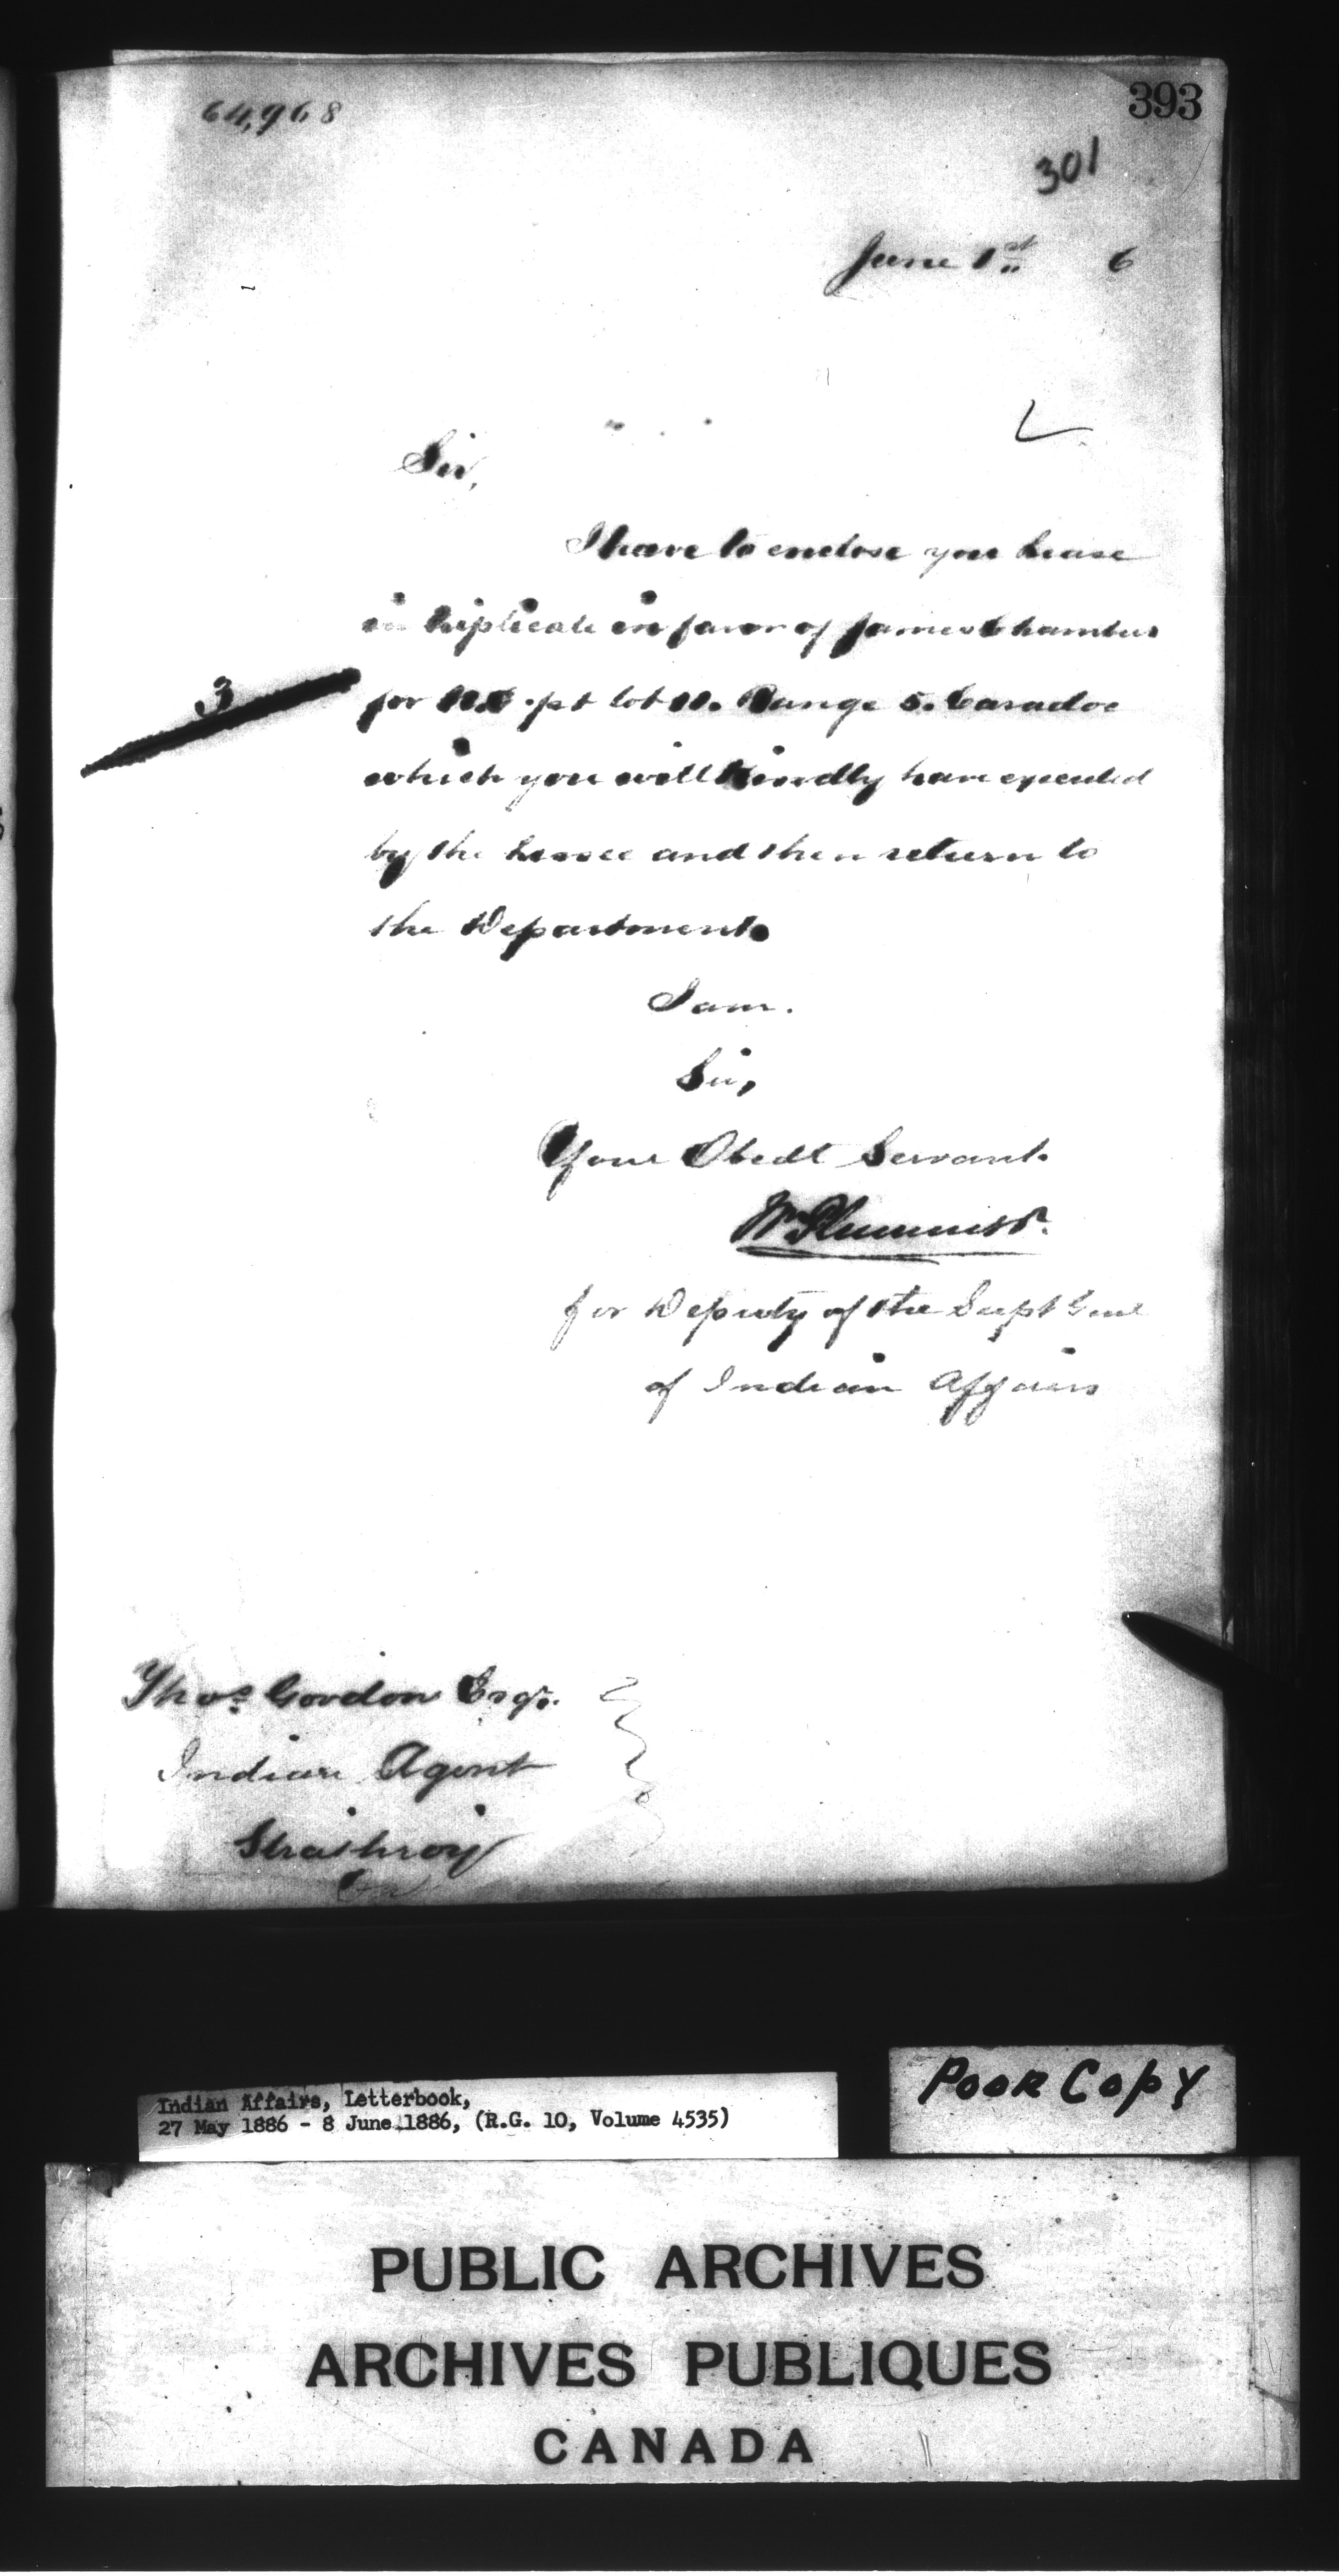 64,968
393
301
June 1st 6
Sir,
I have to enclose you Lease
in triplicate in favor of James Chambers
3
for pt lot 11. Range 5. Caradoc
which you will kindly have executed
by the Lessee and then return to
the Department.
I am.
Sir,
Your Obedt Servant.
W. Plummer
for Deputy of the Supt Genl
of Indian Affairs
Thos. Gordon Esqr.
Indian Agent
Strathroy
Indian Affairs, Letterbook,
27 May 1886 - 8 June 1886, (R.G. 10, Volume 4535)
POOR COPY
PUBLIC ARCHIVES
ARCHIVES PUBLIQUES
CANADA